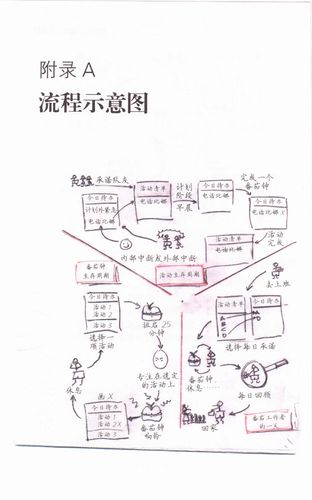 附录 A
流程示意图
承诺队友
活动清单
电话比娜
计划
阶段
早晨
今日待办
电话比娜
完成一个
番茄钟
今日待办
计划外紧急
电话比娜
今日待办
电话比娜 X
内部中断或外部中断
活动清单
电话比娜
活动
完成
番茄钟
生存周期
活动生存周期
今日待办
活动 1
活动 2
活动 3
选择一
项活动
拨石 25
分钟
专注在选定
的活动上
番茄钟
响铃
画 X
今日待办
活动 1
活动 2X
活动 3
休息
去上班
活动清单
今日待办
选择每日承诺
番茄钟
休息……
每日回顾
回家
番茄工作者
的一天